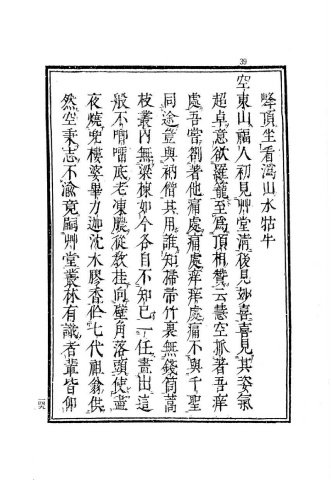 39
峰頂坐看溈山水牯牛
空東山福人初見艸堂清後見妙喜喜見其姿氣
超卓意欲羅籠至爲頂相贊云慧空抓著吾痒
處吾嘗劄著他痛處痛處痒痒處痛不與千聖
同途豈與衲僧共用誰知掃帚竹裏無錢筒蒿
枝叢內無梁棟如今各自不知已一任畫出這
般不唧𠺕底老凍膿從教挂向壁角落頭使晝
夜燒兜樓婆畢力迦沈水膠香作七代祖翁供
然空秉志不渝竟嗣艸堂叢林有識者輩皆仰